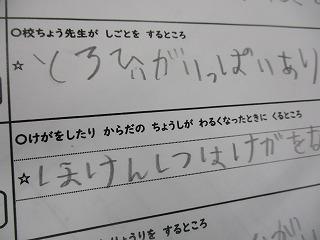 ○校ちょう先生が しごとを するところ
☆とろひがいっぱいあり
○けがをしたり からだの ちょうしが わるくなったときに くるところ
☆ほけんしつはけがをな
りょうりを するところ